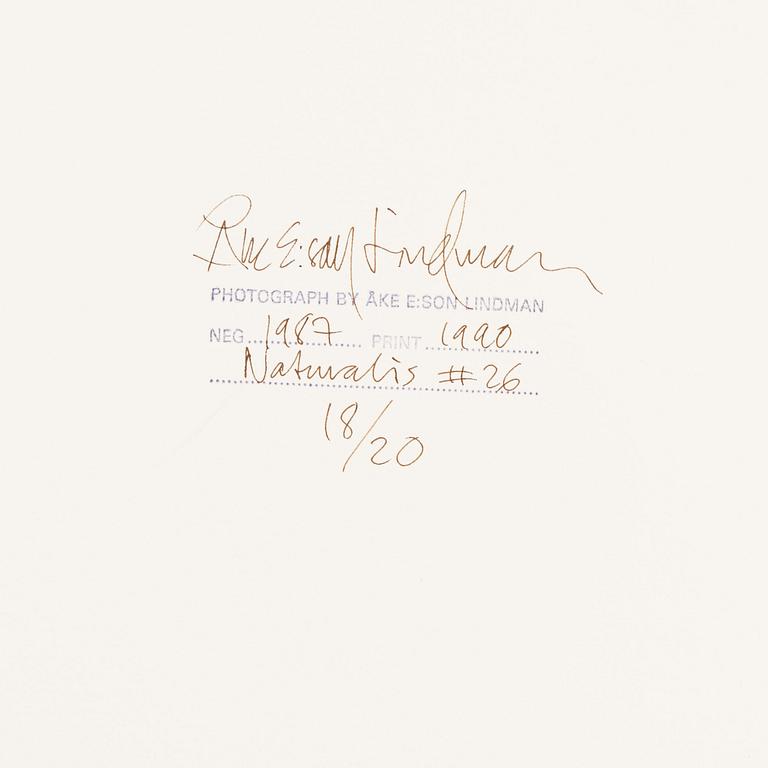 Åke E:son Lindman
PHOTOGRAPH BY ÅKE E:SON LINDMAN
NEG....1987.... PRINT....1990....
Naturalis #26
18/20